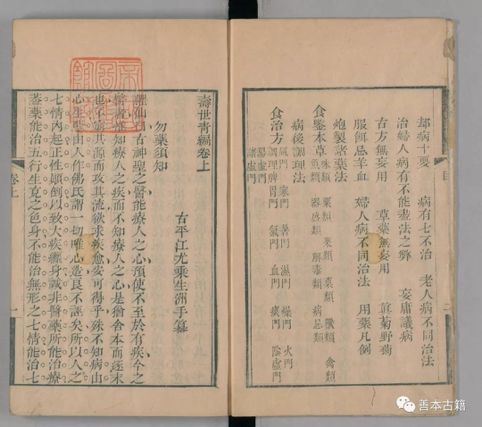 却病十要　病有七不治　老人病不同治法
治婦人病有不能盡法之弊　妄庸議病
古方無妄用　草藥無妄用　眞菊野菊
服何忌羊血　婦人病不同治法　用藥凡例
炮製諸藥法
病後調理法
食鑒本草
味類　菓類　菜類　獸類　禽類
魚類　器皿類　解毒類　病忌類
食治方
風門　寒門　暑門　濕門　燥門　火門
調理脾胃門　氣門　血門　痰門　陰虛門
陽虛門　諸虛門
壽世青編卷上
古平江尤乘生洲手纂
勿藥須知
臞仙曰古神聖之醫能療人之心預使不至於有疾今之
醫者惟知療人之疾而不知療人之心是猶舍本而逐末
也不窮其源而攻其流欲求疾愈安可得乎殊不知病由
心生業由人作佛氏謂一切唯心造良不誣矣所以人之
七情內起正性顛倒以致大疾纏身誠非醫藥所能治療
蓋藥能治五行生尅之色身不能治無形之七情能治七
卷上
一
目
善本古籍